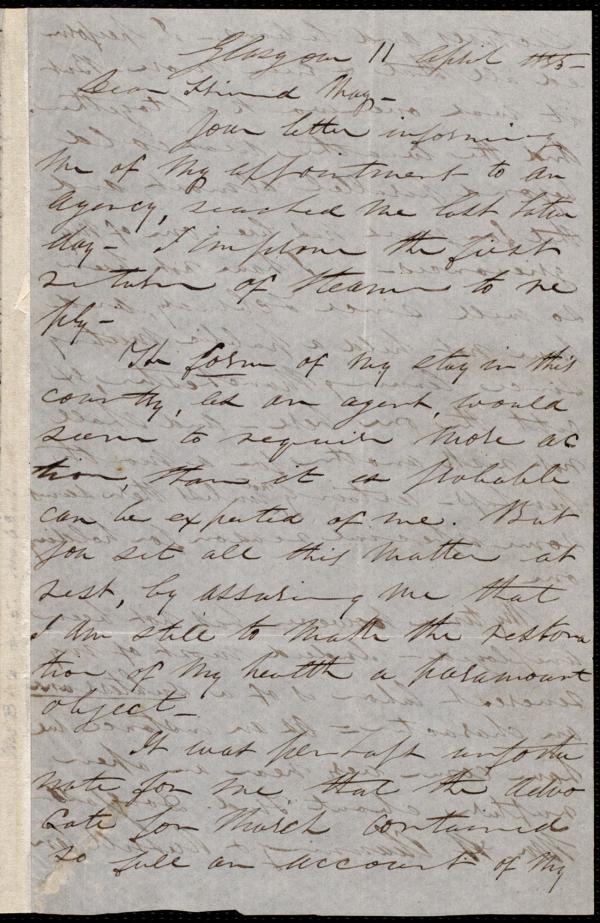 Glasgow 11 April 1855-
Dear Friend May-
Your letter informing
me of my appointment to an
agency, reached me last Satur
day- I improve the first
return of steamer to re
ply-
The form of my stay in this
country, as an agent, would
seem to require more ac
tion, than it is probable
can be expected of me. But
you set all this matter at
rest, by assuring me that
I am still to make the restora
tion of my health a paramount
object-
It was perhaps unfortu
nate for me that the Advo
cate for March contained
so full an account of my